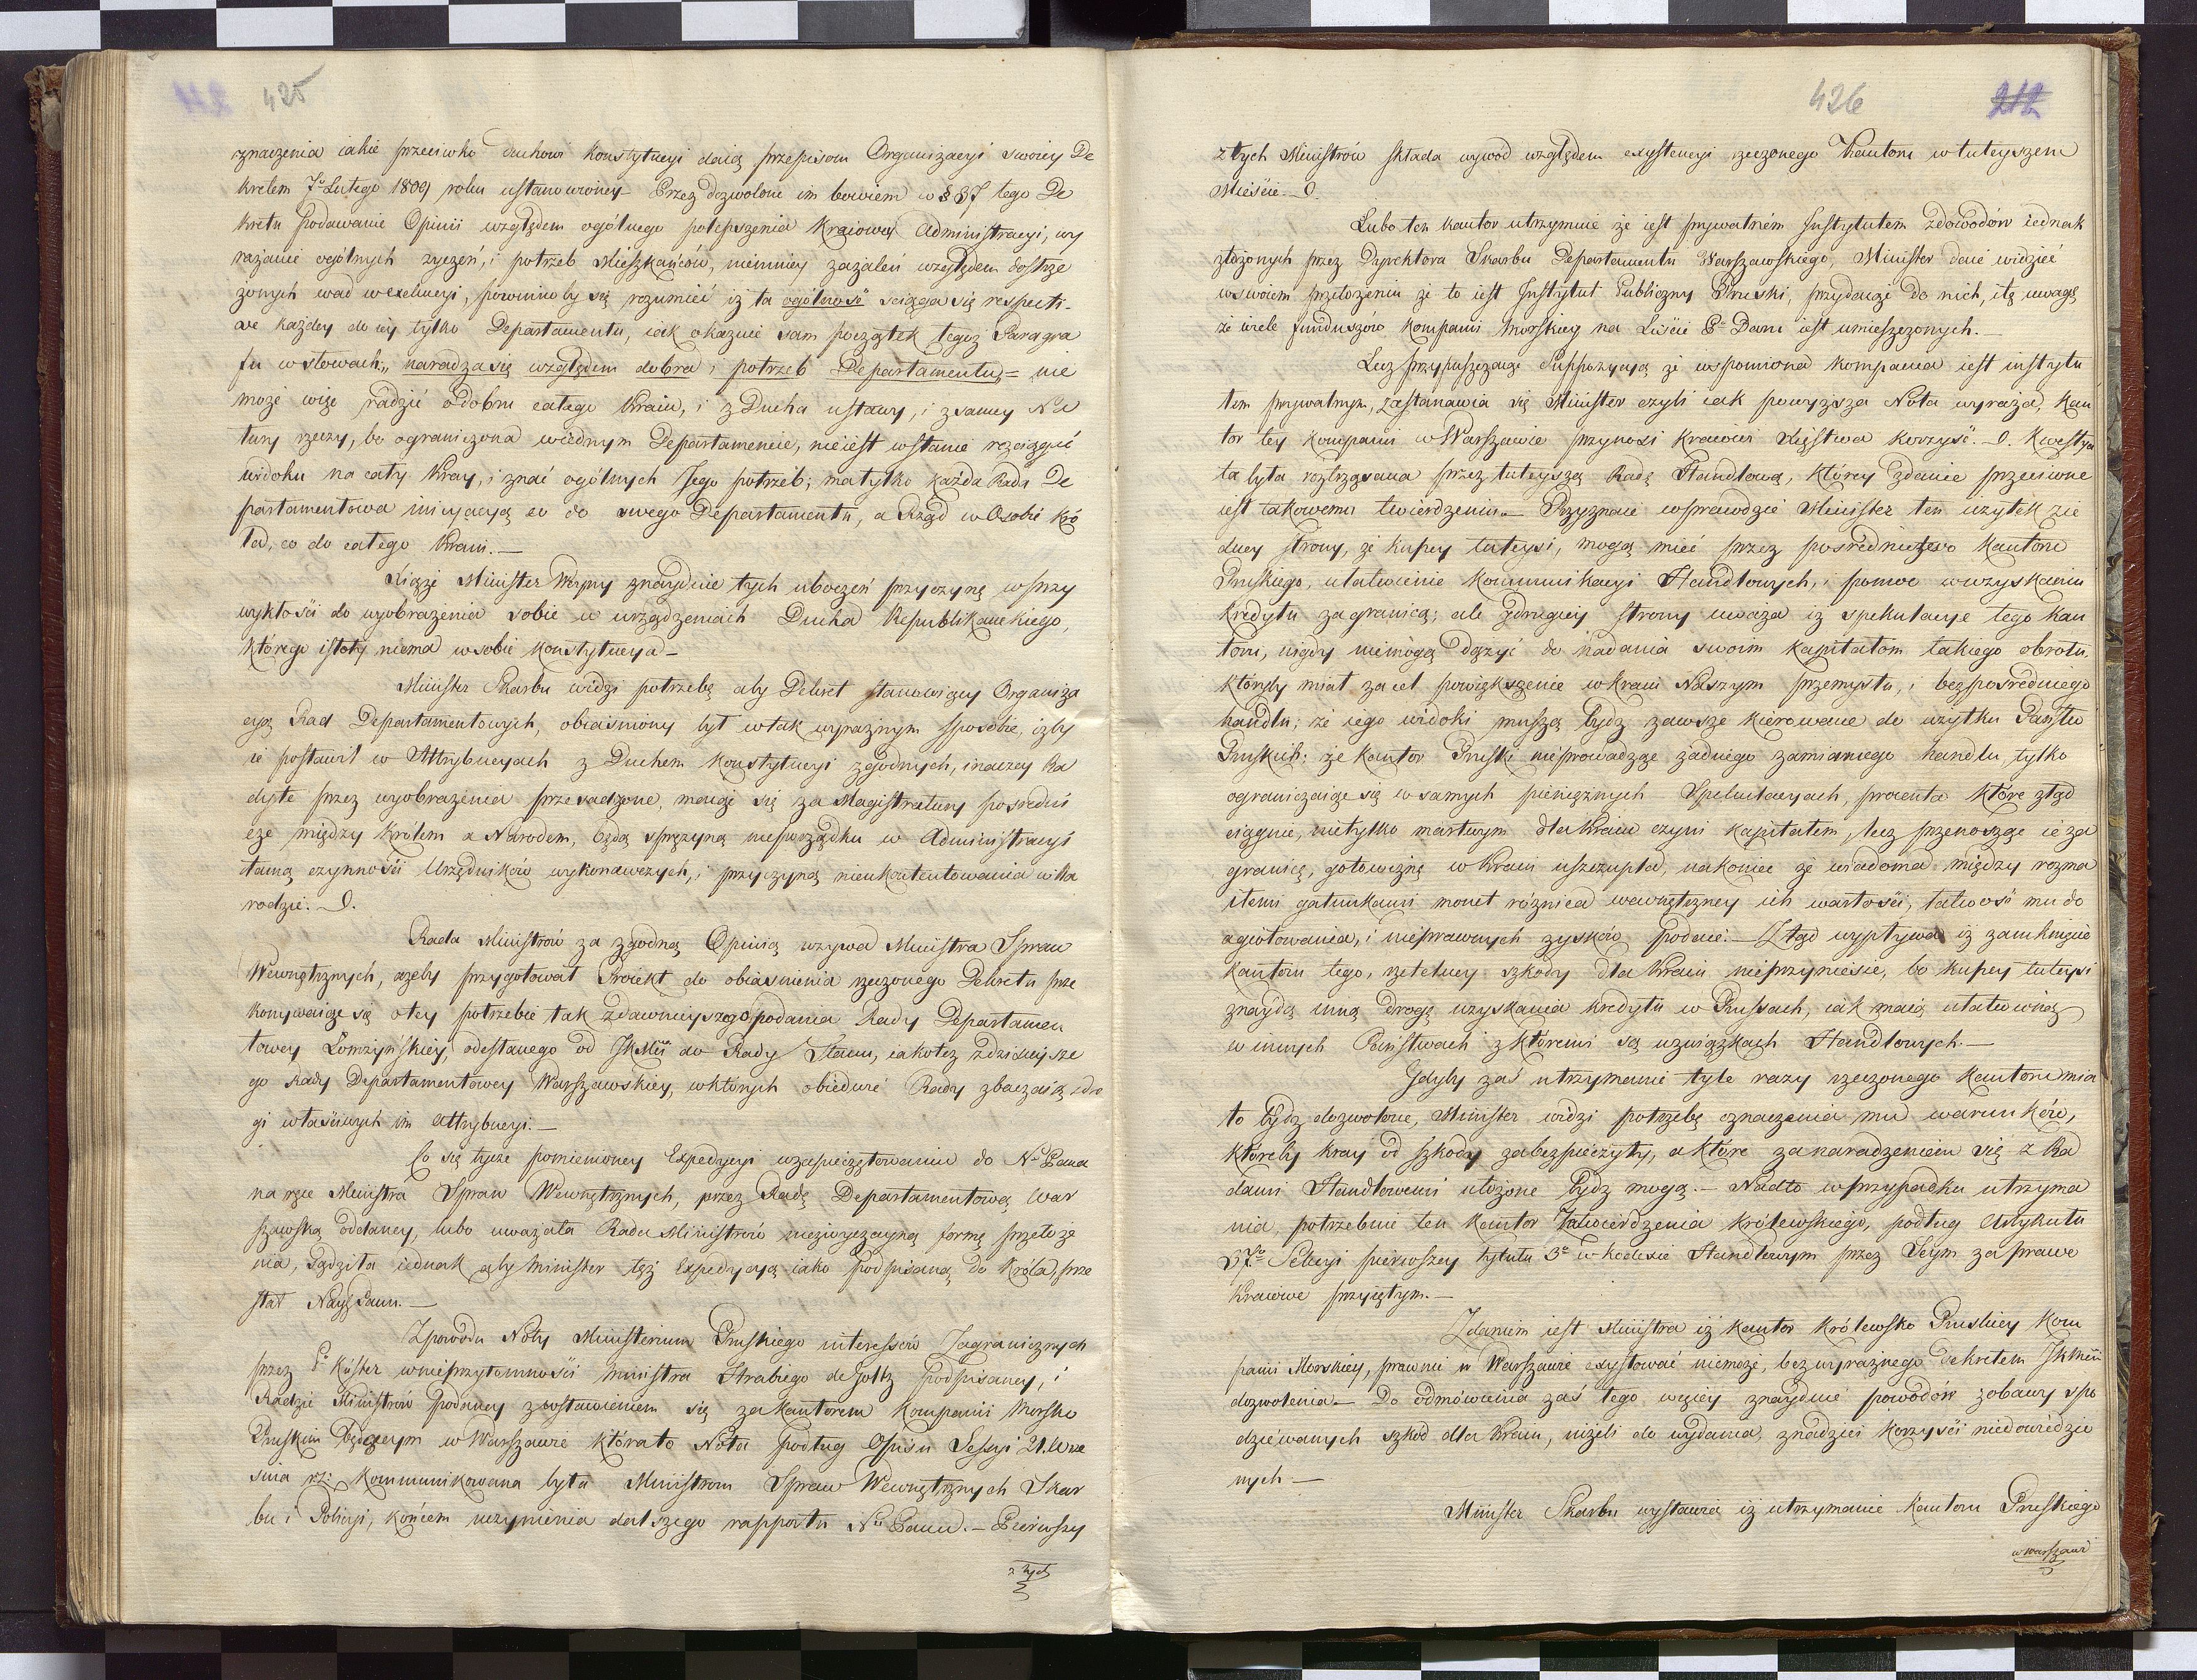 425
znaczenia iakie przeciwko duchowi konstytucyi daią przepisom Organizacyi swoiey De
kretem 7o Lutego 1809 roku ustanowioney. Przez dozwolone im bowiem w § 37 tego De
kretu podawanie Opinii względem ogólnego polepszenia kraiowey Administracyi, wy
rażanie ogólnych życzeń, i potrzeb Mieszkańców, niemniey zażaleń względem dostrze
żonych wad w exekucyi, powinnoby się rozumieć iż ta ogólność sciąga się respecti-
ve każdey do iey tylko Departamentu, iak okazuie sam początek tegoż Paragra
fu w słowach „naradza się względem dobra i potrzeb Departamentu = nie
może więc radzić o dobru całego kraiu, i z Ducha ustawy, i z samey Na
tury rzeczy, bo ograniczona w iednym Departamencie, nie iest w stanie rozciągnąć
widoku na cały kray, i znać ogólnych Jego potrzeb; ma tylko każda Rada De
partamentowa inicyacyą co do swego Departamentu, a Rząd w Osobie Kró
la, co do całego kraiu. —
Xiąże Minister Woyny znayduie tych uboczeń przyczynę w przy
wykłości do wyobrażenia sobie w urządzeniach Ducha Republikanckiego,
którego istoty niema w sobie konstytucya —
Minister Skarbu widzi potrzebę aby Dekret stanowiący Organiza
cyą Rad Departamentowych, obiaśniony był w tak wyraźnym sposobie, iżby
ie postawił w Attrybucyach z Duchem konstytucyi zgodnych, inaczey Ra
dy te przez wyobrażenia przesadzone, maiąc się za Magistratury pośredni
cze między Królem a Narodem, będą sprężyną nieporządku w Administracyi
tamą czynności Urzędników wykonawczych, i przyczyną nieukontentowania w Na
rodzie.
Rada Ministrów za zgodną Opinią wzywa Ministra Spraw
Wewnętrznych, ażeby przygotował Proiekt do obiaśnienia rzeczonego Dekretu prze
konywaiąc się o tey potrzebie tak z dawnieyszego podania Rady Departamen
towey Łomżyńskiey, odesłanego od JKMci do Rady Stanu, iakoteż z dzisieysze
go Rady Departamentowey Warszawskiey, w których obiedwie Rady zbaczaią z dro
gi właściwych im Attrybucyi. —
Co się tycze pomienioney Expedycyi w zapieczętowaniu do Nu Pana
na ręce Ministra Spraw Wewnętrznych, przez Radę Departamentową War
szawską oddaney, lubo uważała Rada Ministrów niezwyczayną formę przełoże
nia, sądziła iednak aby Minister tęż Expedycyą iako podpisaną do Króla, prze
słał Nayś Panu. —
Z powodu Noty Ministerium Pruskiego interessów Zagranicznych
przez Pa Köster w nieprzytomności Ministra Hrabiego de Goltz podpisaney, i
Radzie Ministrów podaney z wstawieniem się za Kantorem Kompanii Morsko
Pruskim będącym w Warszawie która to Nota podług Opisu Sessyi 21. Wrze
śnia r. z: kommunikowana była Ministrom Spraw Wewnętrznych Skar
bu i Policyi, końcem uczynienia dalszego rapportu Nu Panu. — Pierwszy
z tych
426
212
z tych Ministrów składa wywod względem exystencyi rzeczonego Kantoru w tuteyszem
Mieście.
Lubo ten kantor utrzymuie że iest prywatném Instytutem z dowodów iednak
złożonych przez Dyrektora Skarbu Departamentu Warszawskiego, Minister daie widzieć
w swoiem przełożeniu że to iest Instytut Publiczny Pruski, przydaiąc do nich, i tę uwagę
że wiele funduszów kompanii Morskiey na Liście Pa Dani iest umieszczonych. —
Lecz przypuszczaiąc Suppozycyą że wspomniona kompania iest instytu
tem prywatnym, zastanawia się Minister czyli iak powyższa Nota wyraża, kan
tor tey kompanii w Warszawie przynosi kraiowi Xięstwa korzyść. Kwestya
ta była roztrząsana przez tuteyszą Radę Handlową, którey zdanie przeciwne
iest takowemu twierdzeniu. — Przyznaie wprawdzie Minister ten użytek z ie
dney strony, że kupcy tuteysi, mogą mieć przez pośrednictwo Kantoru
Pruskiego, ułatwienie kommunikacyi Handlowych, i pomoc w uzyskaniu
kredytu zagranicą; ale z drugiey strony uważa iż spekulacye tego kan
toru, nigdy niemogą dążyć do nadania swoim kapitałom takiego obrotu,
któryby miał za cel powiększenie w kraiu Naszym przemysłu, i bezpośredniego
handlu; że iego widoki muszą bydz zawsze kierowane do użytku Państw
Pruskich; że kantor Pruski nieprowadząc żadnego zamiannego handlu, tylko
ograniczaiąc się w samych pieniężnych Spekulacyach, procenta które ztąd
ciągnie, nietylko martwym dla kraiu czyni kapitałem, lecz przenosząc ie za
granicę, gotowiznę w kraiu uszczupla, nakoniec że wiadoma między rozma
itemi gatunkami monet różnica wewnętrzney ich wartości, łatwość mu do
agiotowania, i nieprawnych zysków podaie. — Ztąd wypływa iż zamknięcie
kantoru tego, rzetelney szkody dla kraiu nieprzyniesie, bo kupcy tuteysi
znaydą inną drogę uzyskania kredytu w Prusach, iak maią ułatwioną
w innych Państwach z któremi są w związkach Handlowych. —
Gdyby zaś utrzymanie tyle razy rzeczonego Kantoru mia
ło bydz dozwolone, Minister widzi potrzebę oznaczenia mu warunków,
któreby kray od szkody zabezpieczyły, a które za naradzeniem się z Ra
dami Handlowemi ułożone bydz mogą. — Nadto w przypadku utrzyma
nia, potrzebuie ten Kantor zatwierdzenia królewskiego, podług Artykułu
37o Sekcyi pierwszey tytułu 3o w kodexie Handlowym przez Seym za prawo
kraiowe przyiętym. —
Zdaniem iest Ministra iż kantor Królewsko Pruskiey Kom
panii Morskiey, prawnie w Warszawie exystować niemoże, bez wyraźnego dekretem JKMci
dozwolenia. — Do odmówienia zaś tego więcey znayduie powodów z obawy spo
dziéwanych szkod dla kraiu, niżeli do wydania, z nadziei korzyści niedowiedzio
nych —
Minister Skarbu wystawia iż utrzymanie kantoru Pruskiego
w Warszawi